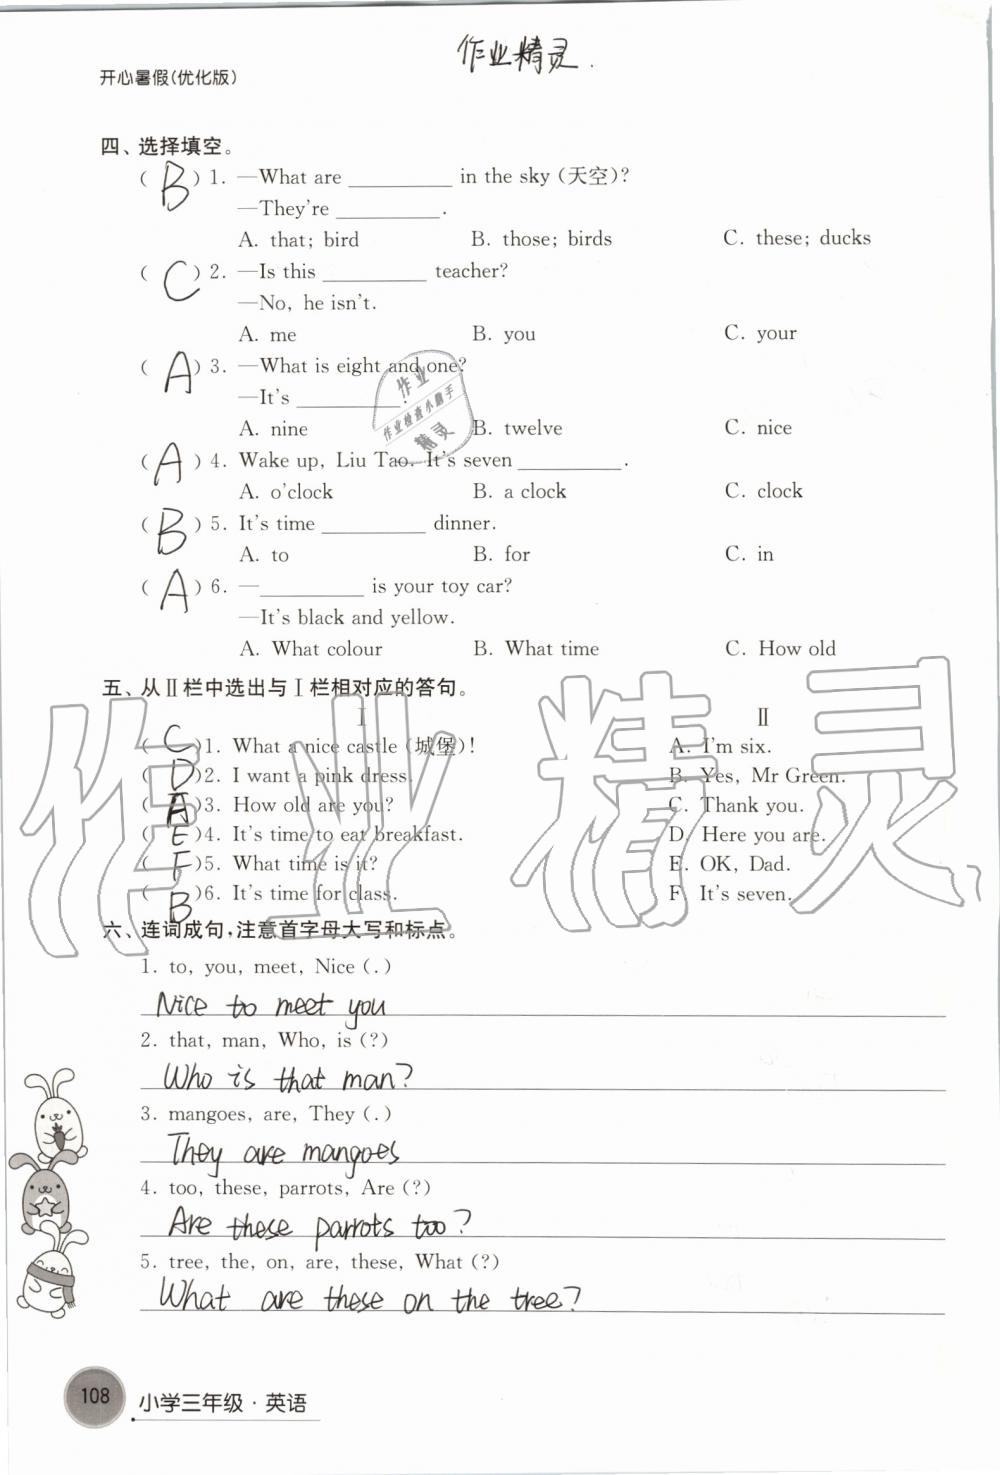 作业精灵.
开心暑假(优化版)
四、选择填空。
( B )1. —What are ________ in the sky (天空)?
—They're ________.
A. that; bird B. those; birds C. these; ducks
( C )2. —Is this ________ teacher?
—No, he isn't.
A. me B. you C. your
( A )3. —What is eight and one?
—It's ________.
A. nine B. twelve C. nice
( A )4. Wake up, Liu Tao. It's seven ________.
A. o'clock B. a clock C. clock
( B )5. It's time ________ dinner.
A. to B. for C. in
( A )6. —________ is your toy car?
—It's black and yellow.
A. What colour B. What time C. How old
作业
作业检查小助手
精灵
五、从Ⅱ栏中选出与Ⅰ栏相对应的答句。
Ⅰ Ⅱ
( C )1. What a nice castle (城堡)! A. I'm six.
( D )2. I want a pink dress. B. Yes, Mr Green.
( A )3. How old are you? C. Thank you.
( E )4. It's time to eat breakfast. D. Here you are.
( F )5. What time is it? E. OK, Dad.
( B )6. It's time for class. F. It's seven.
作业精灵
六、连词成句,注意首字母大写和标点。
1. to, you, meet, Nice (.)
Nice to meet you
2. that, man, Who, is (?)
Who is that man?
3. mangoes, are, They (.)
They are mangoes
4. too, these, parrots, Are (?)
Are these parrots too?
5. tree, the, on, are, these, What (?)
What are these on the tree?
108
小学三年级·英语